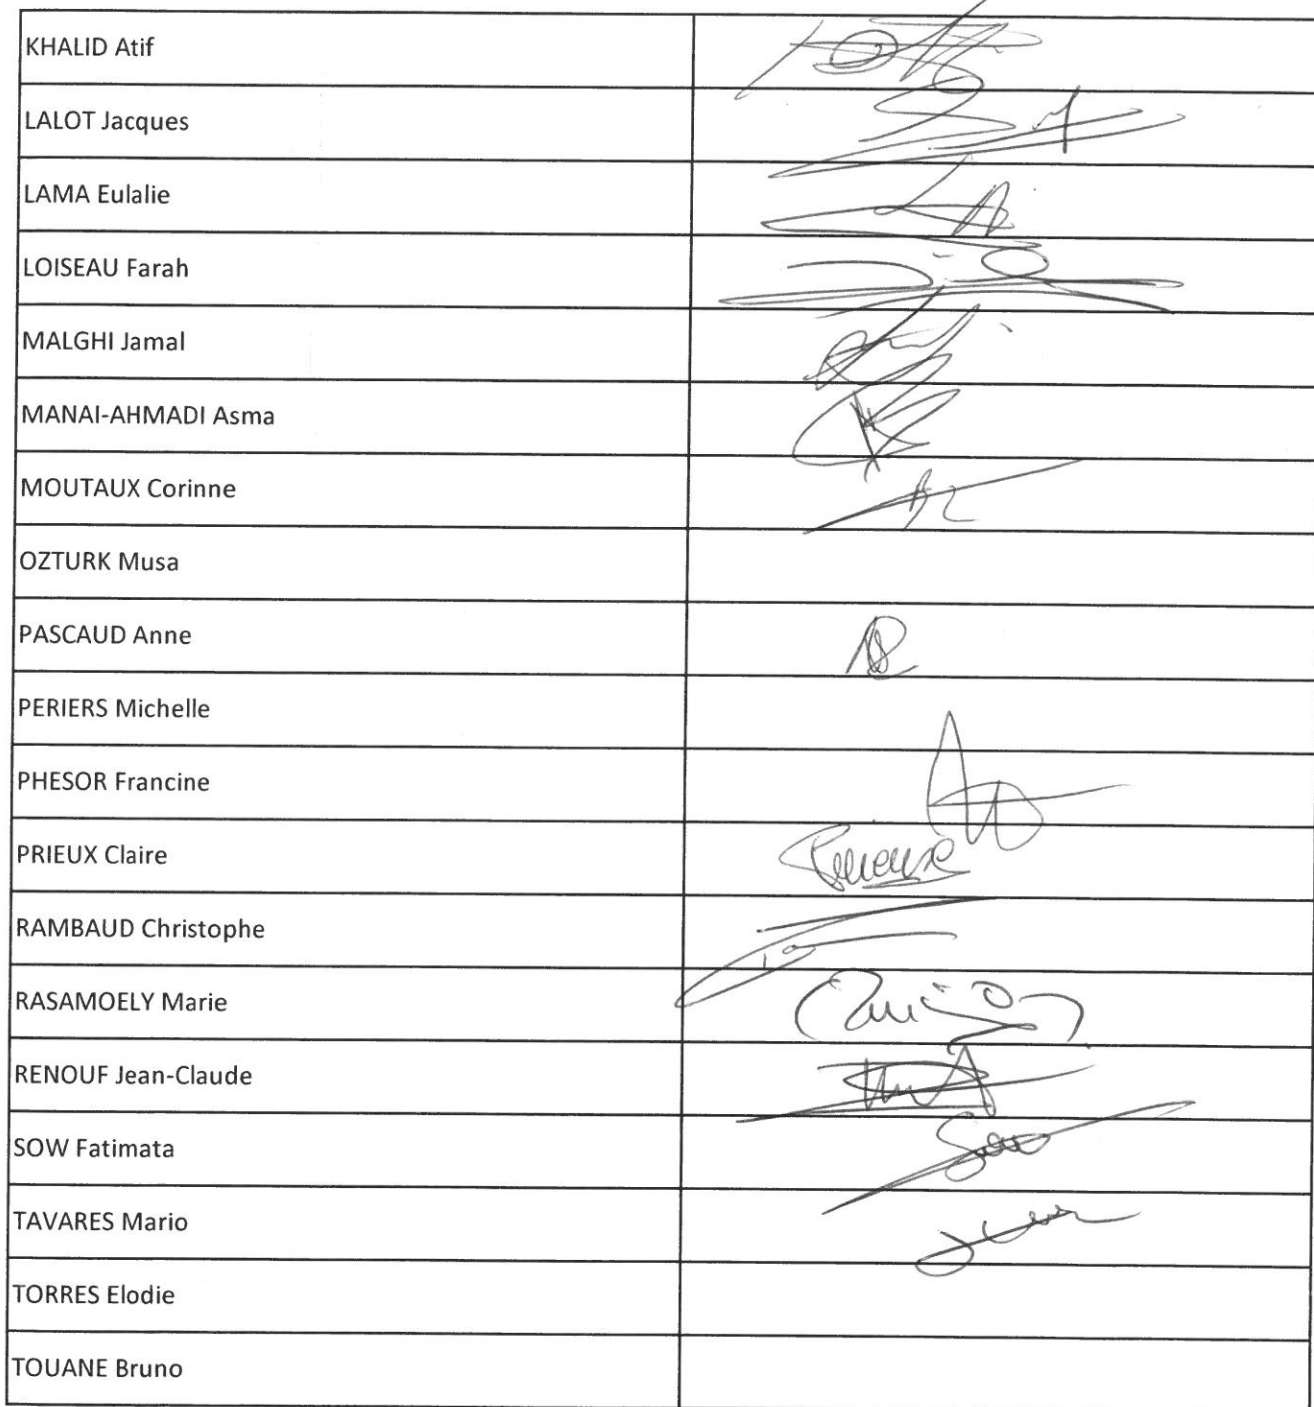 KHALID Atif
LALOT Jacques
LAMA Eulalie
LOISEAU Farah
MALGHI Jamal
MANAI-AHMADI Asma
MOUTAUX Corinne
OZTURK Musa
PASCAUD Anne
PERIERS Michelle
PHESOR Francine
PRIEUX Claire
RAMBAUD Christophe
RASAMOELY Marie
RENOUF Jean-Claude
SOW Fatimata
TAVARES Mario
TORRES Elodie
TOUANE Bruno